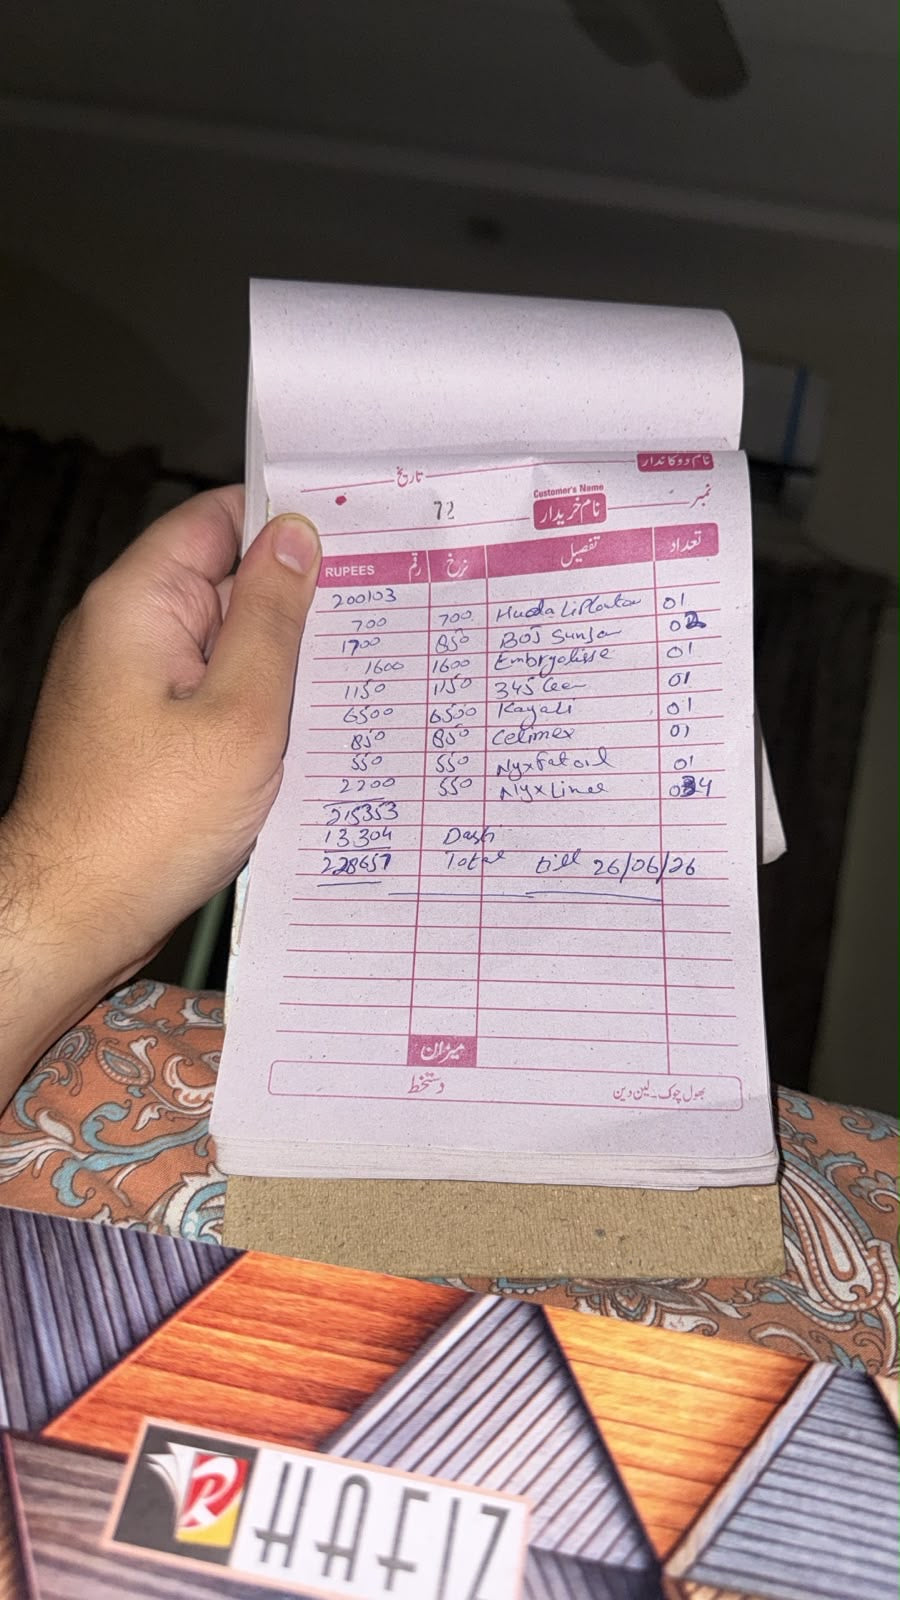 نام دوکاندار
تاریخ
نمبر
72
Customer's Name
نام خریدار
RUPEES رقم نرخ تفصیل تعداد
200103
700 700 Huda Liplator 01
1700 850 BOJ Sunsc 02
1600 1600 Embryolisse 01
1150 1150 345 Cream 01
6500 6500 Kayali 01
850 850 Celimex 01
550 550 Nyx Fat oil 01
2200 550 Nyx Liner 04
215353
13304 Dash
228657 Total till 26/06/26
میزان
دستخط
بھول چوک۔لین دین
HAFIZ